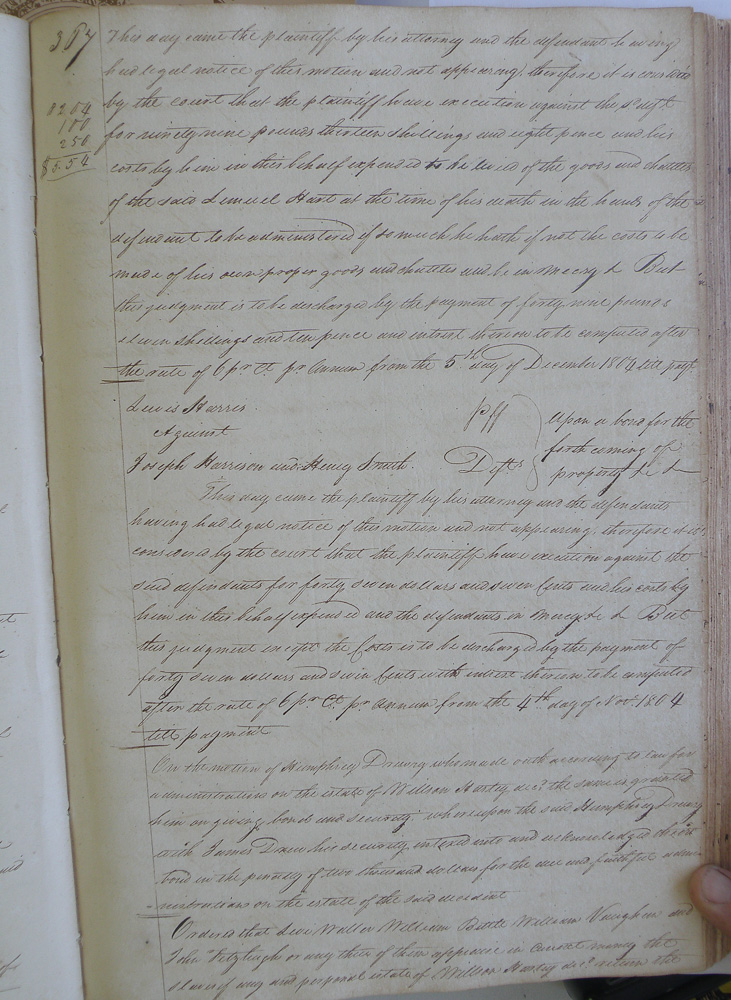 387
This day came the plaintiff by his attorney and the defendant having
had legal notice of this motion and not appearing, therefore it is considered
by the court that the plaintiff have execution against the sd deft
0204
100
250
$5.54
for ninety nine pounds thirteen shillings and eight pence and his
costs by him in this behalf expended to be levied of the goods and chattles
of the said Lemuel Hart at the time of his death in the hands of the
defendant to be administered if so much he hath if not the costs to be
made of his own proper goods and chattles and be in mercy &c But
this judgment is to be discharged by the payment of forty nine pounds
eleven shillings and ten pence and interest thereon to be computed after
the rate of 6 pr Ct pr Annum from the 5th day of December 1804 till payt
Lewis Harris Plf
Against
Joseph Harrison and Henry Smith Defts
Upon a bond for the
forth coming of
property &c &
This day came the plaintiff by his attorney and the defendants
having had legal notice of this motion and not appearing, therefore it is
considered by the court that the plaintiff have execution against the
said defendants for forty seven dollars and seven Cents and his costs by
him in this behalf expended and the defendants in mercy &c & But
this judgment except the Costs is to be discharged by the payment of
forty seven dollars and seven Cents with interest thereon to be computed
after the rate of 6 pr Ct pr Annum from the 4th day of Novr 1804
till payment
On the motion of Humphrey Drewry who made oath according to law for
administration on the estate of Willson Harley decd the same is granted
him on giving bond and security, whereupon the said Humphrey Drewry
with James Drew his security entered into and acknowledged their
bond in the penalty of two thousand dollars for the due and faithful admi
nistrations on the estate of the said decedent
Ordered that Waller William Battle William Vaughan and
John Fitzhugh or any three of them appraise in current money the
slaves if any and personal estate of Willson Harley decd return the